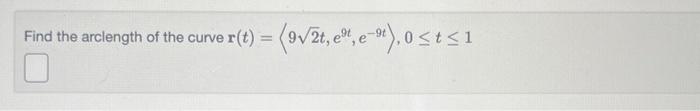 Find the arclength of the curve r(t) = ⟨9√2t, e^{9t}, e^{-9t}⟩, 0 ≤ t ≤ 1